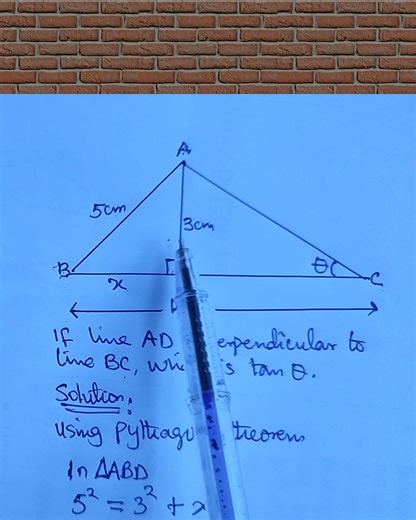 A
5cm
3cm
B
x
θ
C
If line AD perpendicular to
line BC, is tan θ.
Solution:
Using theorem
In ΔABD
5² = 3² + x